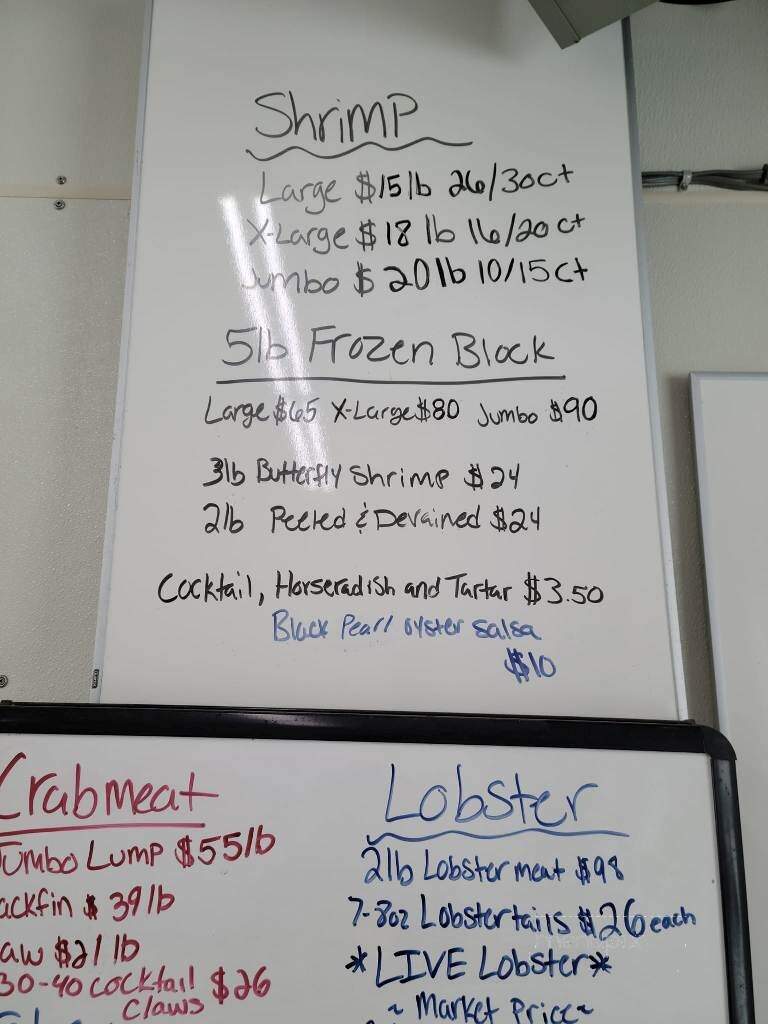 Shrimp
Large $15 lb 26/30ct
X-Large $18 lb 16/20 ct
Jumbo $20 lb 10/15ct
5lb Frozen Block
Large $65 X-Large $80 Jumbo $90
3lb Butterfly Shrimp $24
2lb Peeled & Devained $24
Cocktail, Horseradish and Tartar $3.50
Black Pearl oyster salsa
$10
Crabmeat
Jumbo Lump $55 lb
ackfin $39 lb
aw $21 lb
30-40 cocktail $26
claws
Lobster
2lb Lobster meat $98
7-8oz Lobster tails $26 each
*LIVE Lobster*
~ Market Price ~